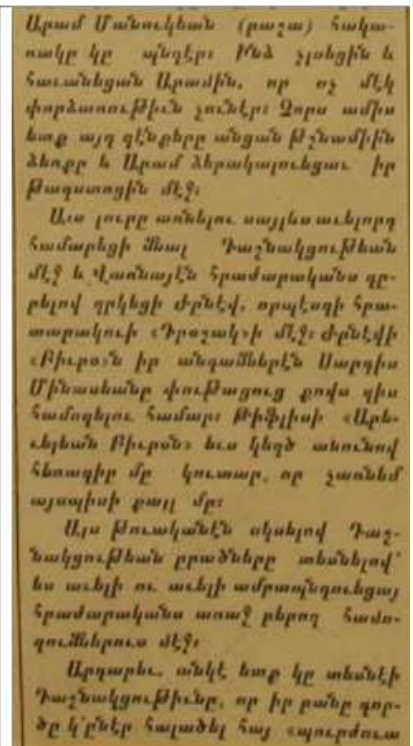 Արամ Մանուկեան (բաշա) հակա-
ռակը կը պնդէր։ Ինձ չլսեցին և
հաւանեցան Արամին, որ ոչ մէկ
փորձառութիւն չունէր։ Չորս ամիս
ետք այդ զէնքերը անցան թշնամիին
ձեռքը և Արամ ձերակալուեցաւ իր
թագստոցին մէջ։
Այս լուրը առնելու այլևս աւելորդ
համարեցի մնալ Դաշնակցութեան
մէջ և վառնայէն հրաժարականս գը-
րելով ղրկեցի Ժընէվ, որպէսզի հրա-
տարակուի «Դրօշակ»ի մէջ։ Ժընէվի
«Բիւրօ»ն իր անդամներէն Սարգիս
Մինասեանը փութացուց քովս զիս
համոզելու համար։ Թիֆլիսի «Արե-
ւելեան Բիւրօն» ևս կեղծ անունով
հեռագիր մը կուտար, որ չառնեմ
այսպիսի քայլ մը։
Այս թուականէն սկսելով Դաշ-
նակցութեան ըրածները տեսնելով՝
ես աւելի ու աւելի ամրապնդուեցայ
հրաժարականս առաջ բերող համո-
զումներուս մէջ։
Արդարեւ, անկէ ետք կը տեսնէի
Դաշնակցութիւնը, որ իր բանը գոր-
ծը կ՚ընէր հալածել հայ «պուրժուա